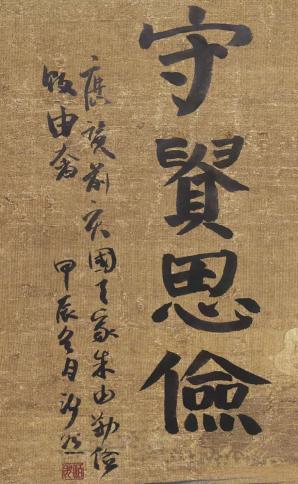 守賢思儉
歷覽前賢國與家成由勤儉
敗由奢
甲辰冬月